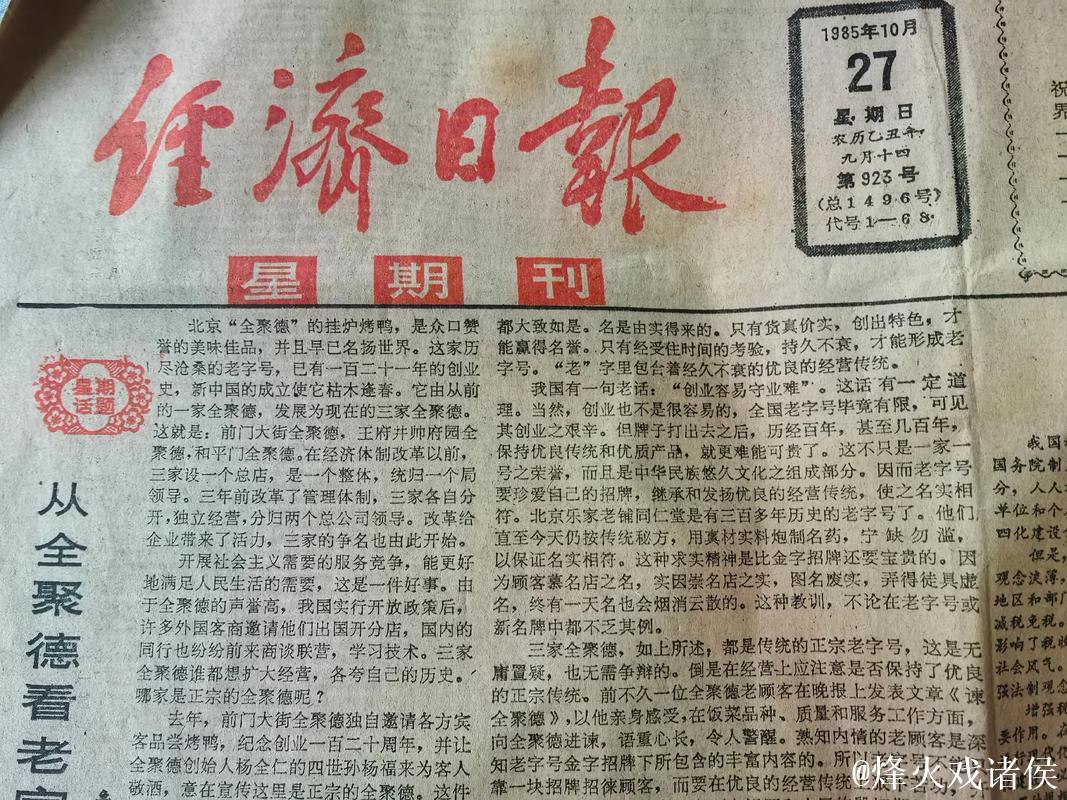 經濟日報
星期刊
1985年10月
27
星期日
农历乙丑年
九月十四
第923号
(总1496号)
代号1—68
祝
界
星期
话题
从全聚德看老字
北京“全聚德”的挂炉烤鸭，是众口赞
誉的美味佳品，并且早已名扬世界。这家历
尽沧桑的老字号，已有一百二十一年的创业
史，新中国的成立使它枯木逢春。它由从前
的一家全聚德，发展为现在的三家全聚德。
这就是：前门大街全聚德，王府井帅府园全
聚德，和平门全聚德。在经济体制改革以前，
三家设一个总店，是一个整体，统归一个局
领导。三年前改革了管理体制，三家各自分
开，独立经营，分归两个总公司领导。改革给
企业带来了活力，三家的争名也由此开始。
开展社会主义需要的服务竞争，能更好
地满足人民生活的需要，这是一件好事。由
于全聚德的声誉高，我国实行开放政策后，
许多外国客商邀请他们出国开分店，国内的
同行也纷纷前来商谈联营，学习技术。三家
全聚德谁都想扩大经营，各夸自己的历史。
哪家是正宗的全聚德呢？
去年，前门大街全聚德独自邀请各方宾
客品尝烤鸭，纪念创业一百二十周年，并让
全聚德创始人杨全仁的四世孙杨福来为客人
敬酒，意在宣传这里是正宗的全聚德。这件
都大致如是。名是由实得来的。只有货真价实，创出特色，才
能赢得名誉。只有经受住时间的考验，持久不衰，才能形成老
字号。“老”字里包含着经久不衰的优良的经营传统。
我国有一句老话：“创业容易守业难”。这话有一定道
理。当然，创业也不是很容易的，全国老字号毕竟有限，可见
其创业之艰辛。但牌子打出去之后，历经百年，甚至几百年，
保持优良传统和优质产品，就更难能可贵了。这不只是一家一
号之荣誉，而且是中华民族悠久文化之组成部分。因而老字号
要珍爱自己的招牌，继承和发扬优良的经营传统，使之名实相
符。北京乐家老铺同仁堂是有三百多年历史的老字号了。他们
直至今天仍按传统秘方，用真材实料炮制名药，宁缺勿滥，
以保证名实相符。这种求实精神是比金字招牌还要宝贵的。因
为顾客慕名店之名，实因崇名店之实，图名废实，弄得徒具虚
名，终有一天名也会烟消云散的。这种教训，不论在老字号或
新名牌中都不乏其例。
三家全聚德，如上所述，都是传统的正宗老字号，这是无
庸置疑，也无需争辩的。倒是在经营上应注意是否保持了优良
的正宗传统。前不久一位全聚德老顾客在晚报上发表文章《谏
全聚德》，以他亲身感受，在饭菜品种、质量和服务工作方面，
向全聚德进谏，语重心长，令人警醒。熟知内情的老顾客是深
知老字号金字招牌下所包含的丰富内容的。所以老字号不
靠一块招牌招徕顾客，而要在优良的经营传统
我国
国务院制
分，人人
单位和个
四化建设
但是，
观念淡薄，
地区和部门
减税免税。
影响了税收
社会风气。
强法制观念
增强税
要作用。在
@烽火戏诸侯